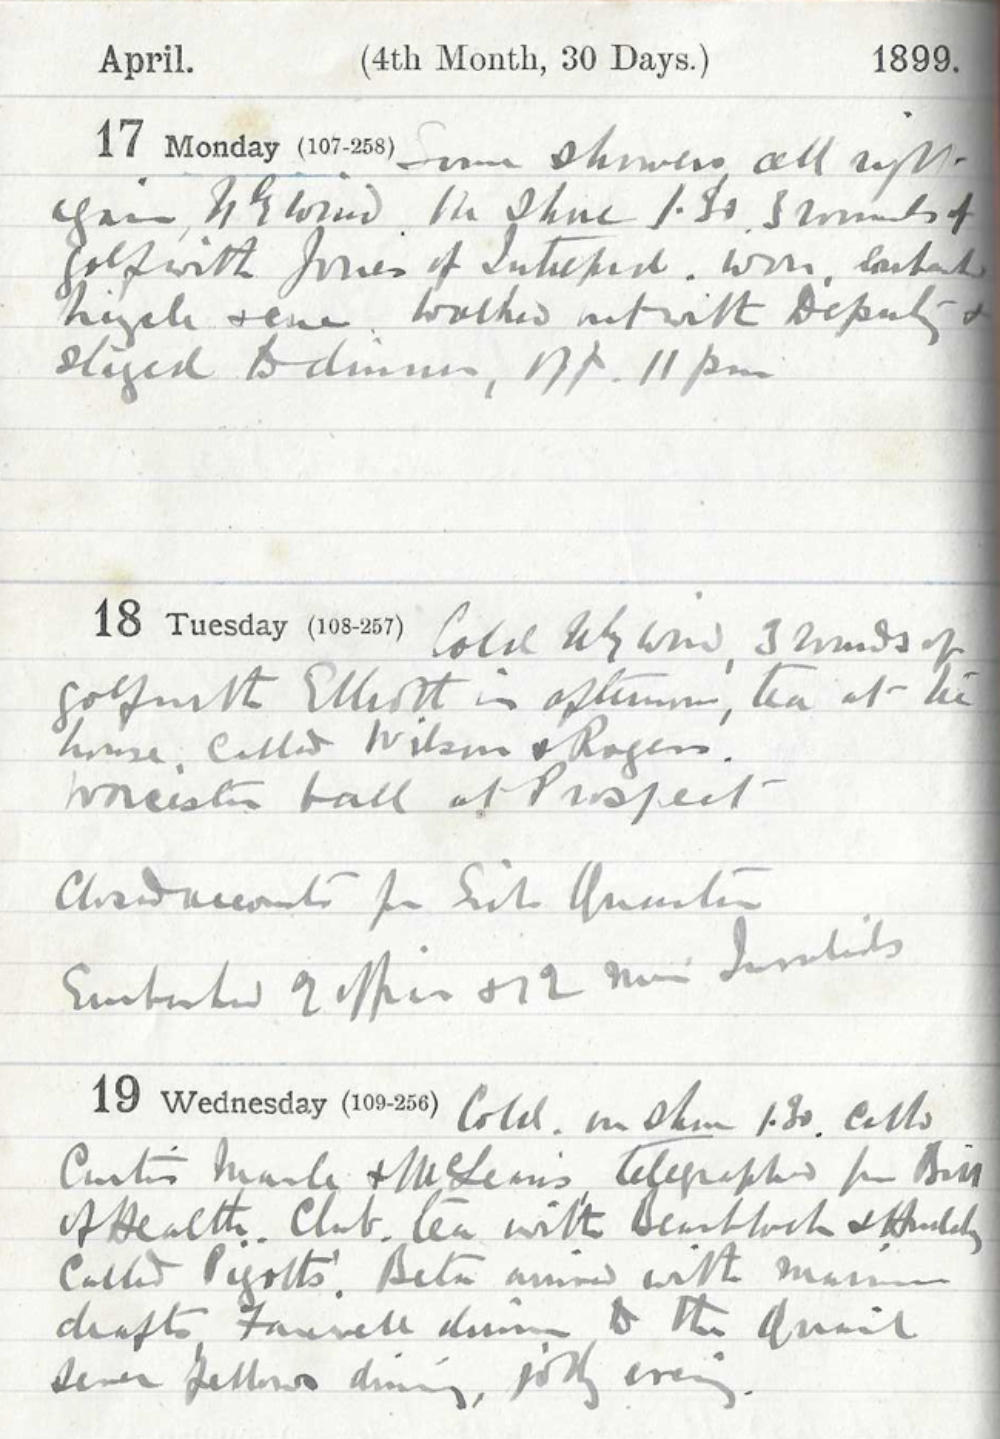 April. (4th Month, 30 Days.) 1899.
17 Monday (107-258) Some showers, all right
again, NEly wind. On Shore 1.30. 3 rounds of
golf with Jones of Intrepid. won.
bicycle walked out with Deputy &
stayed to dinner, off. 11 pm
18 Tuesday (108-257) Cold Nly wind, 3 rounds of
golf with Elliott in afternoon, tea at his
house. Called Wilson & Rogers.
Worcester ball at Prospect
Closed accounts for Quarter
Embarked 2 officers & 72 men Invalids
19 Wednesday (109-256) Cold. on shore 1.30. Calls
Curtis & McLeans, telegraphed for Bill
of Health. Club. tea with &
Called Pigotts'. arrived with marine
drafts, Farewell dinner to the Quail
seven fellows dining, jolly evening.